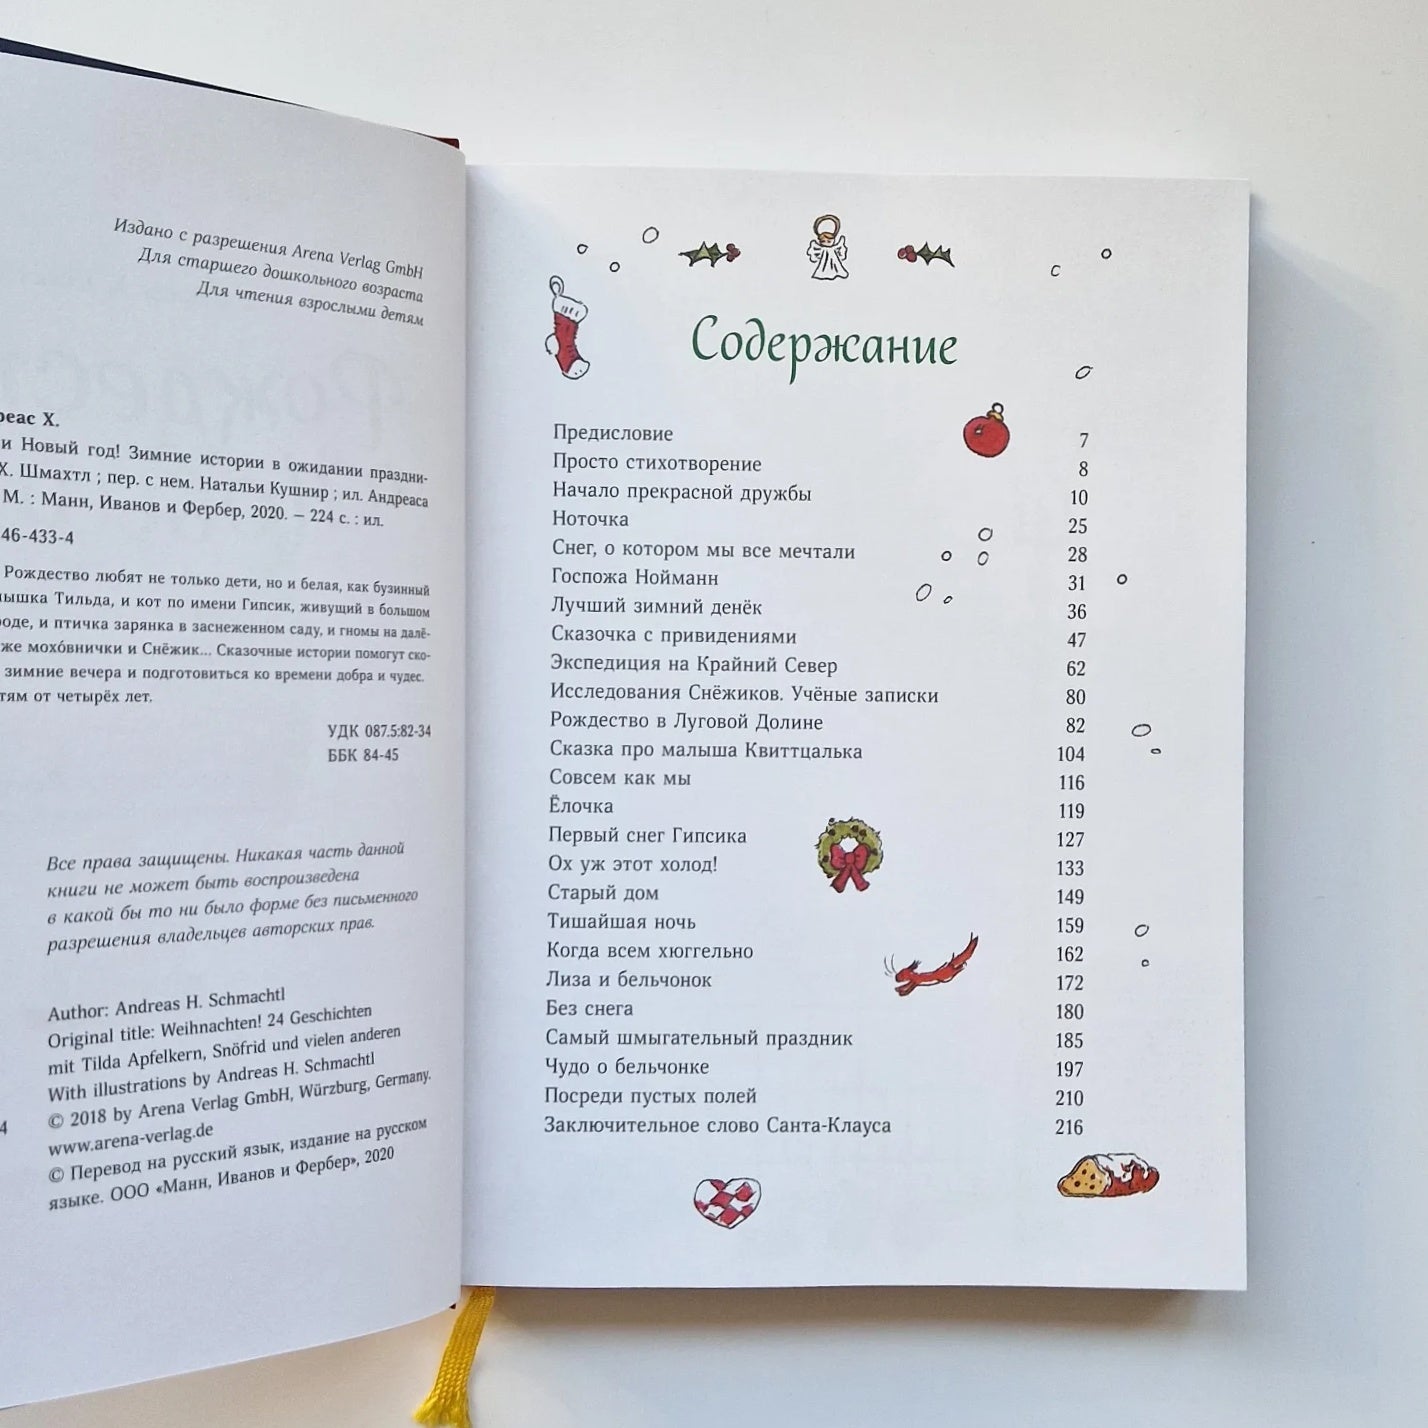 Издано с разрешения Arena Verlag GmbH
Для старшего дошкольного возраста
Для чтения взрослыми детям
Х.
и Новый год! Зимние истории в ожидании праздни-
Х. Шмахтл ; пер. с нем. Натальи Кушнир ; ил. Андреаса
М. : Манн, Иванов и Фербер, 2020. – 224 с. : ил.
46-433-4
Рождество любят не только дети, но и белая, как бузинный
Тильда, и кот по имени Гипсик, живущий в большом
и птичка зарянка в заснеженном саду, и гномы на далё-
же мохо́внички и Снёжик... Сказочные истории помогут ско-
зимние вечера и подготовиться ко времени добра и чудес.
от четырёх лет.
УДК 087.5:82-34
ББК 84-45
Все права защищены. Никакая часть данной
книги не может быть воспроизведена
в какой бы то ни было форме без письменного
разрешения владельцев авторских прав.
Author: Andreas H. Schmachtl
Original title: Weihnachten! 24 Geschichten
mit Tilda Apfelkern, Snöfrid und vielen anderen
With illustrations by Andreas H. Schmachtl
© 2018 by Arena Verlag GmbH, Würzburg, Germany.
www.arena-verlag.de
© Перевод на русский язык, издание на русском
языке. ООО «Манн, Иванов и Фербер», 2020
Содержание
Предисловие 7
Просто стихотворение 8
Начало прекрасной дружбы 10
Ноточка 25
Снег, о котором мы все мечтали 28
Госпожа Нойманн 31
Лучший зимний денёк 36
Сказочка с привидениями 47
Экспедиция на Крайний Север 62
Исследования Снёжиков. Учёные записки 80
Рождество в Луговой Долине 82
Сказка про малыша Квиттцалька 104
Совсем как мы 116
Ёлочка 119
Первый снег Гипсика 127
Ох уж этот холод! 133
Старый дом 149
Тишайшая ночь 159
Когда всем хюггельно 162
Лиза и бельчонок 172
Без снега 180
Самый шмыгательный праздник 185
Чудо о бельчонке 197
Посреди пустых полей 210
Заключительное слово Санта-Клауса 216